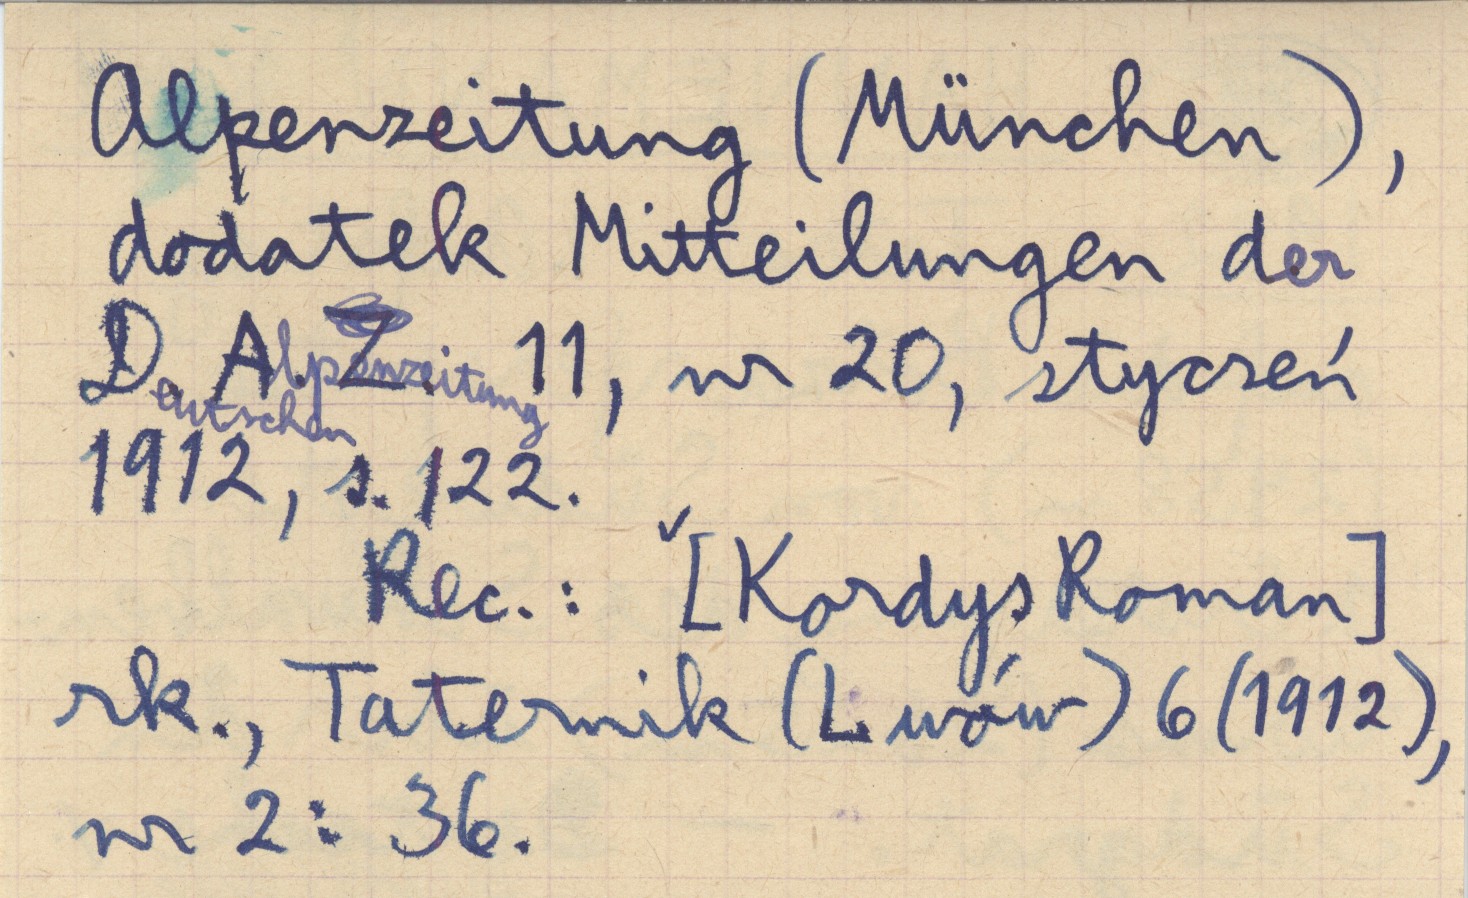 Alpenzeitung (München),
dodatek Mitteilungen der
D. A. Z. 11, nr 20, styczeń
eutschen lpenzeitung
1912, s. 122.
Rec.: ✓[Kordys Roman]
rk., Taternik (Lwów) 6 (1912),
nr 2: 36.